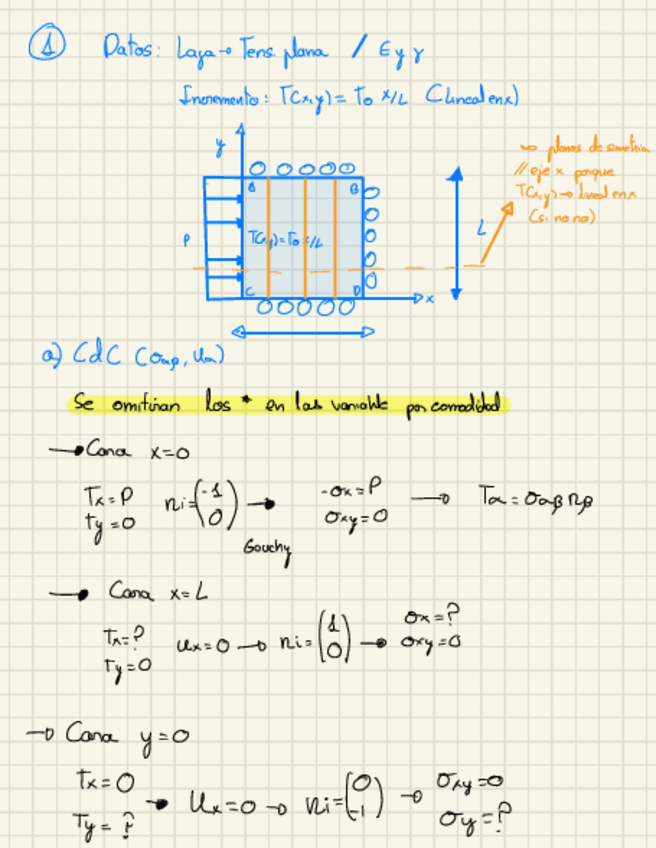 ① Datos: Laja → Tens. plana / E y γ
Incremento: T(x,y) = T₀ x/L (lineal en x)
y
→ planos de simetría
// eje x porque
T(x,y) → lineal en x
(si no no)
A B
T(x,y) = T₀ x/L
P
L
C D
x
a) CdC (σαβ, uα)
Se omitirán los * en las variable por comodidad
→ Cara x=0
Tx = P
ty = 0
ni = (-1 0) →
-σx = P
σxy = 0
→ Tα = σαβ nβ
Gouchy
→ Cara x = L
Tx = ?
Ty = 0
ux = 0 → ni = (1 0) →
σx = ?
σxy = 0
→ Cara y = 0
Tx = 0
Ty = ?
→ Ux = 0 → ni = (0 -1) →
σxy = 0
σy = ?